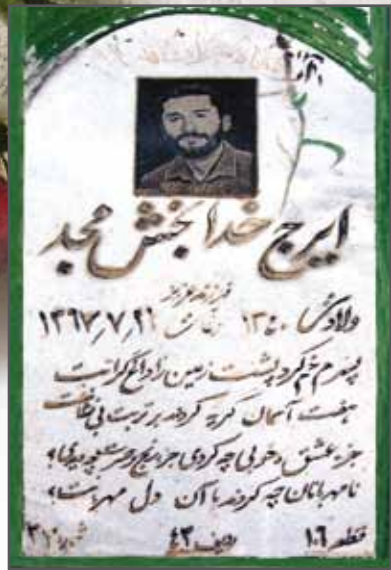 ایرج خدابخش مجد
فرزند عزیز
ولادت وفات ۱۳۶۷
پسرم خم کرد پشت زمین را داغ گرانت
هفت آسمان گریه کردند بر تربت بی نشانت
جز عشق و خوبی چه کردی جز رنج و حسرت چه بردی؟
نامهربانان چه کردند با آن دل مهربانت؟
قطعه ۱۰۶ ردیف ۴۳ شماره